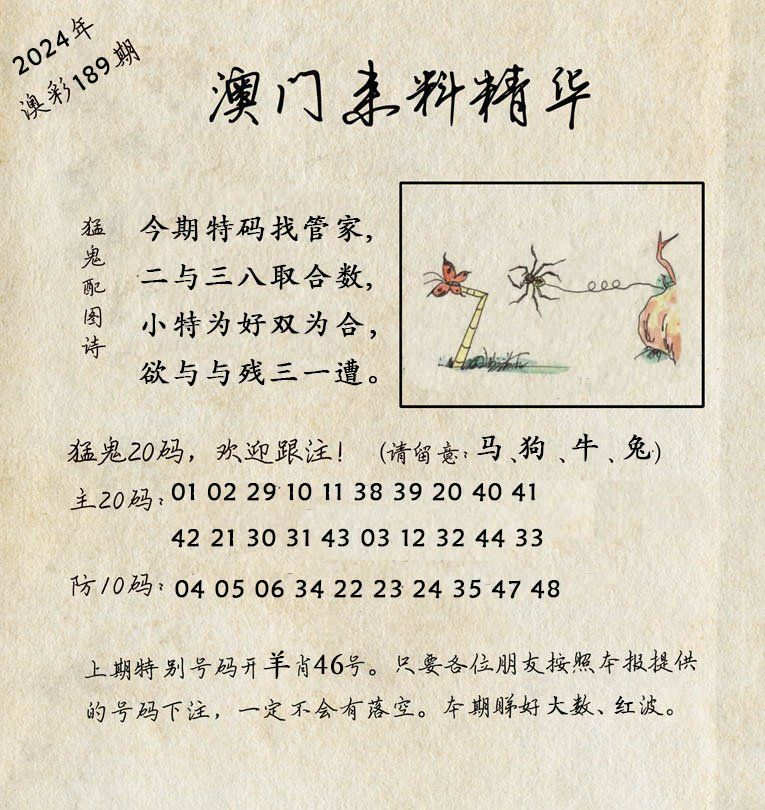 2024年
澳彩189期
澳门来料精华
猛鬼配图诗
今期特码找管家，
二与三八取合数，
小特为好双为合，
欲与与残三一遭。
猛鬼20码，欢迎跟注！（请留意：马、狗、牛、兔）
主20码：01 02 29 10 11 38 39 20 40 41
42 21 30 31 43 03 12 32 44 33
防10码：04 05 06 34 22 23 24 35 47 48
上期特别号码开羊肖46号。只要各位朋友按照本报提供
的号码下注，一定不会有落空。本期睇好大数、红波。